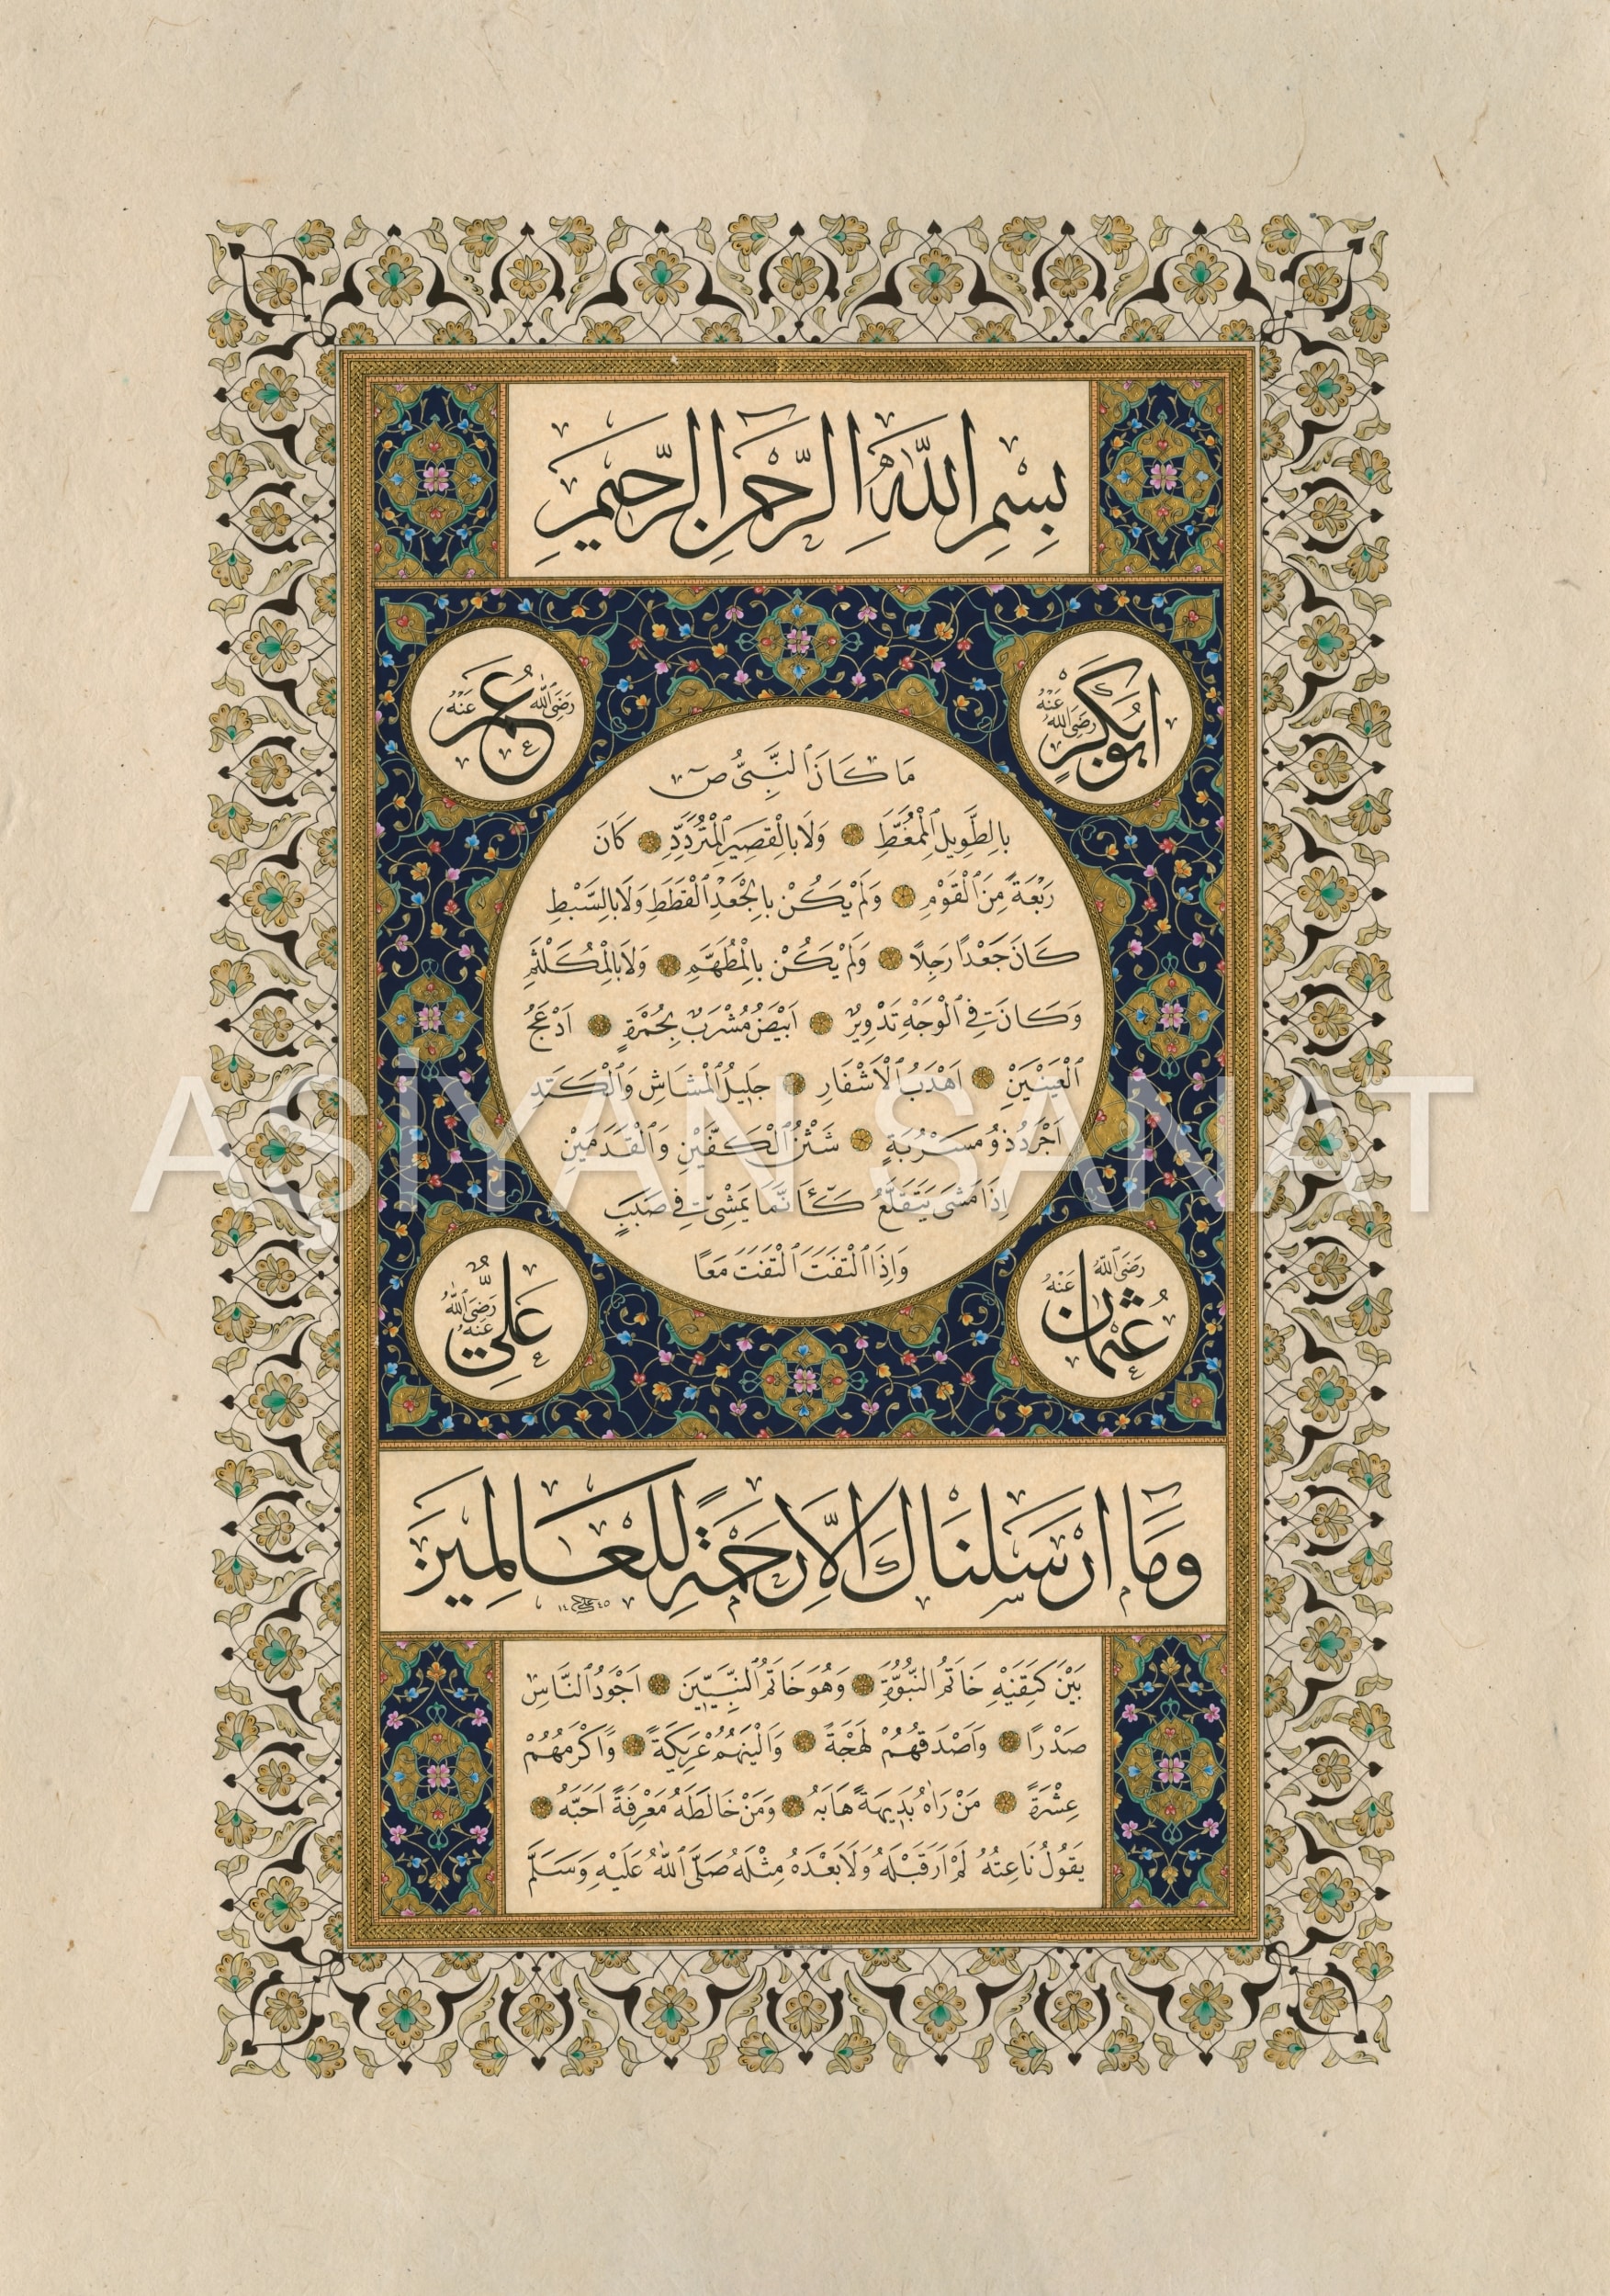 بِسْمِ اللّٰهِ الرَّحْمٰنِ الرَّحِيمِ
اَبُوبَكْرٍ رَضِيَ اللّٰهُ عَنْهُ
عُمَرُ رَضِيَ اللّٰهُ عَنْهُ
مَا كَانَ النَّبِيُّ ص
بِالطَّوِيلِ الْمُمَغَّطِ وَلَا بِالْقَصِيرِ الْمُتَرَدِّدِ كَانَ
رَبْعَةً مِنَ الْقَوْمِ وَلَمْ يَكُنْ بِالْجَعْدِ الْقَطَطِ وَلَا بِالسَّبْطِ
كَانَ جَعْدًا رَجِلًا وَلَمْ يَكُنْ بِالْمُطَهَّمِ وَلَا بِالْمُكَلْثَمِ
وَكَانَ فِي الْوَجْهِ تَدْوِيرٌ اَبْيَضُ مُشْرَبٌ بِحُمْرَةٍ اَدْعَجُ
الْعَيْنَيْنِ اَهْدَبُ الْاَشْفَارِ جَلِيلُ الْمُشَاشِ وَالْكَتَدِ
اَجْرَدُ ذُو مَسْرُبَةٍ شَثْنُ الْكَفَّيْنِ وَالْقَدَمَيْنِ
اِذَا مَشَى يَتَقَلَّعُ كَأَنَّمَا يَمْشِي فِي صَبَبٍ
وَاِذَا الْتَفَتَ الْتَفَتَ مَعًا
عُثْمَانُ رَضِيَ اللّٰهُ عَنْهُ
عَلِيٌّ رَضِيَ اللّٰهُ عَنْهُ
وَمَا اَرْسَلْنَاكَ اِلَّا رَحْمَةً لِلْعَالَمِينَ
بَيْنَ كَتِفَيْهِ خَاتَمُ النُّبُوَّةِ وَهُوَ خَاتَمُ النَّبِيِّينَ اَجْوَدُ النَّاسِ
صَدْرًا وَاَصْدَقُهُمْ لَهْجَةً وَاَلْيَنُهُمْ عَرِيكَةً وَاَكْرَمُهُمْ
عِشْرَةً مَنْ رَاٰهُ بَدِيهَةً هَابَهُ وَمَنْ خَالَطَهُ مَعْرِفَةً اَحَبَّهُ
يَقُولُ نَاعِتُهُ لَمْ اَرَ قَبْلَهُ وَلَا بَعْدَهُ مِثْلَهُ صَلَّى اللّٰهُ عَلَيْهِ وَسَلَّمَ
AŞİYAN SANAT